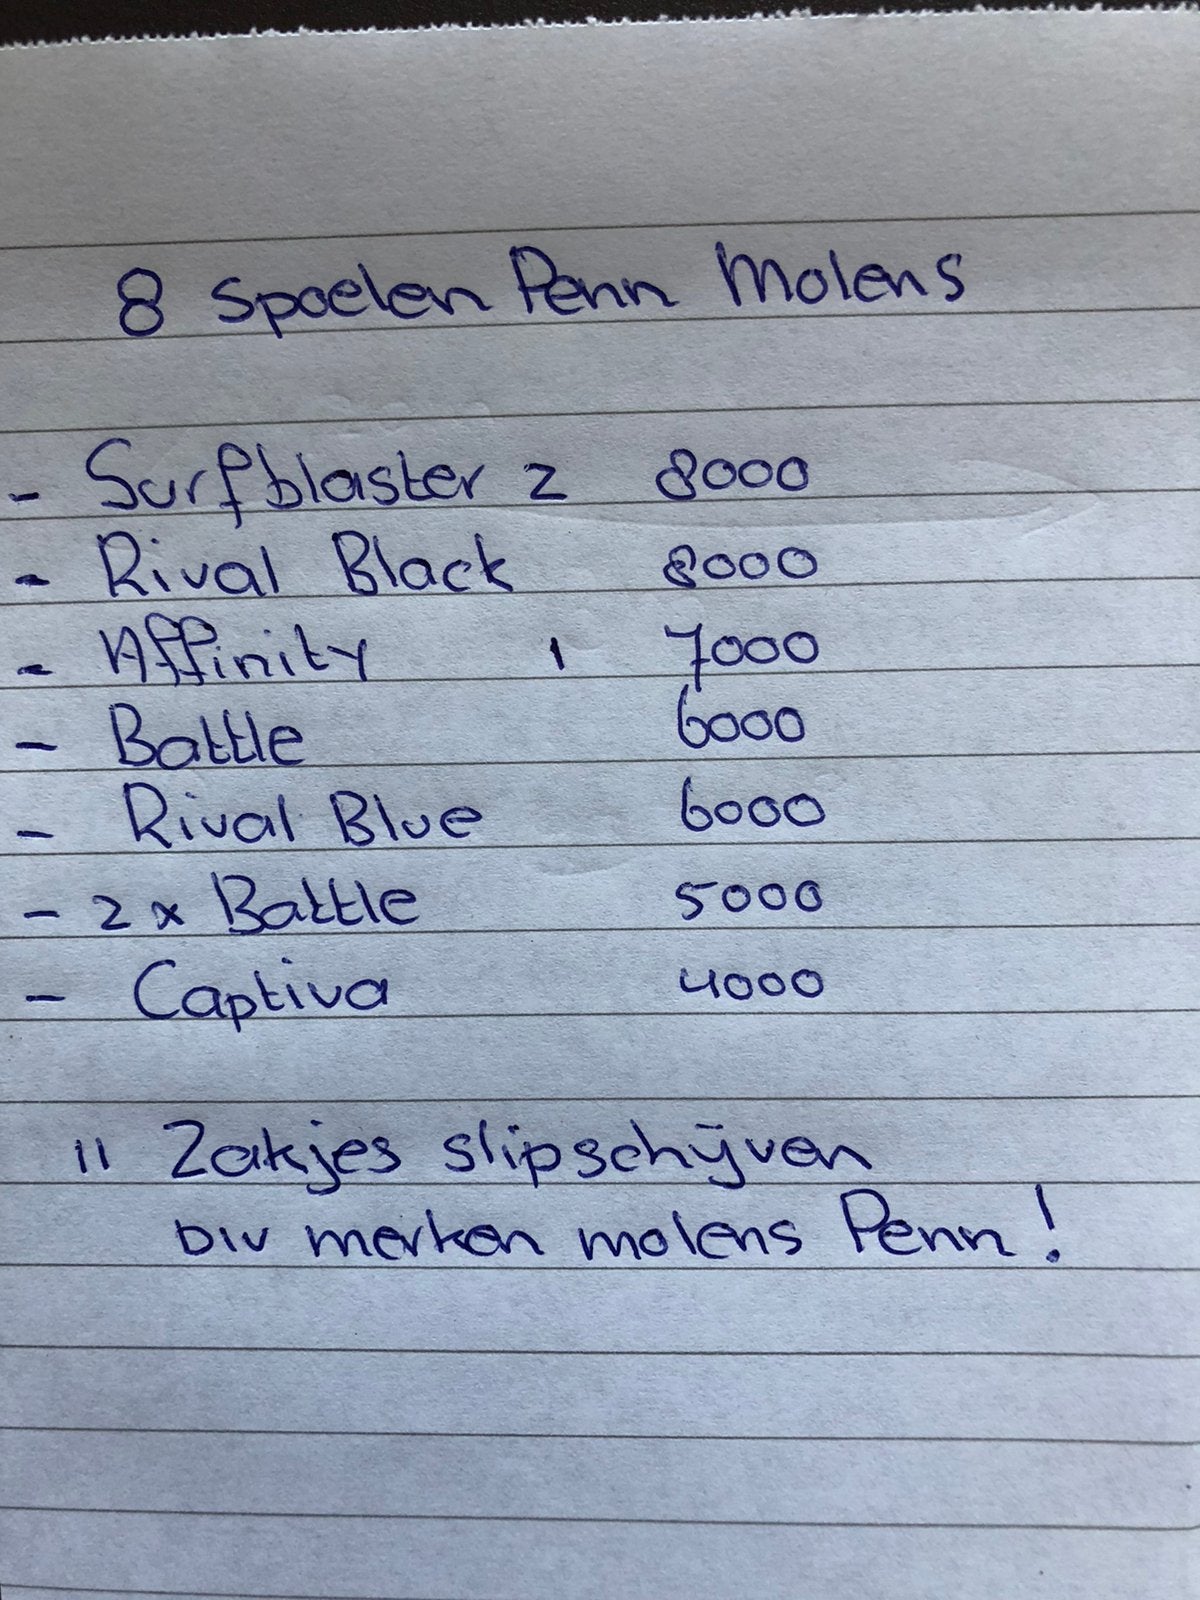 8 Spoelen Penn Molens
- Surfblaster 2 8000
- Rival Black 8000
- Affinity 1 7000
- Battle 6000
- Rival Blue 6000
- 2x Battle 5000
- Captiva 4000
11 Zakjes slipschijven
Div merken molens Penn!